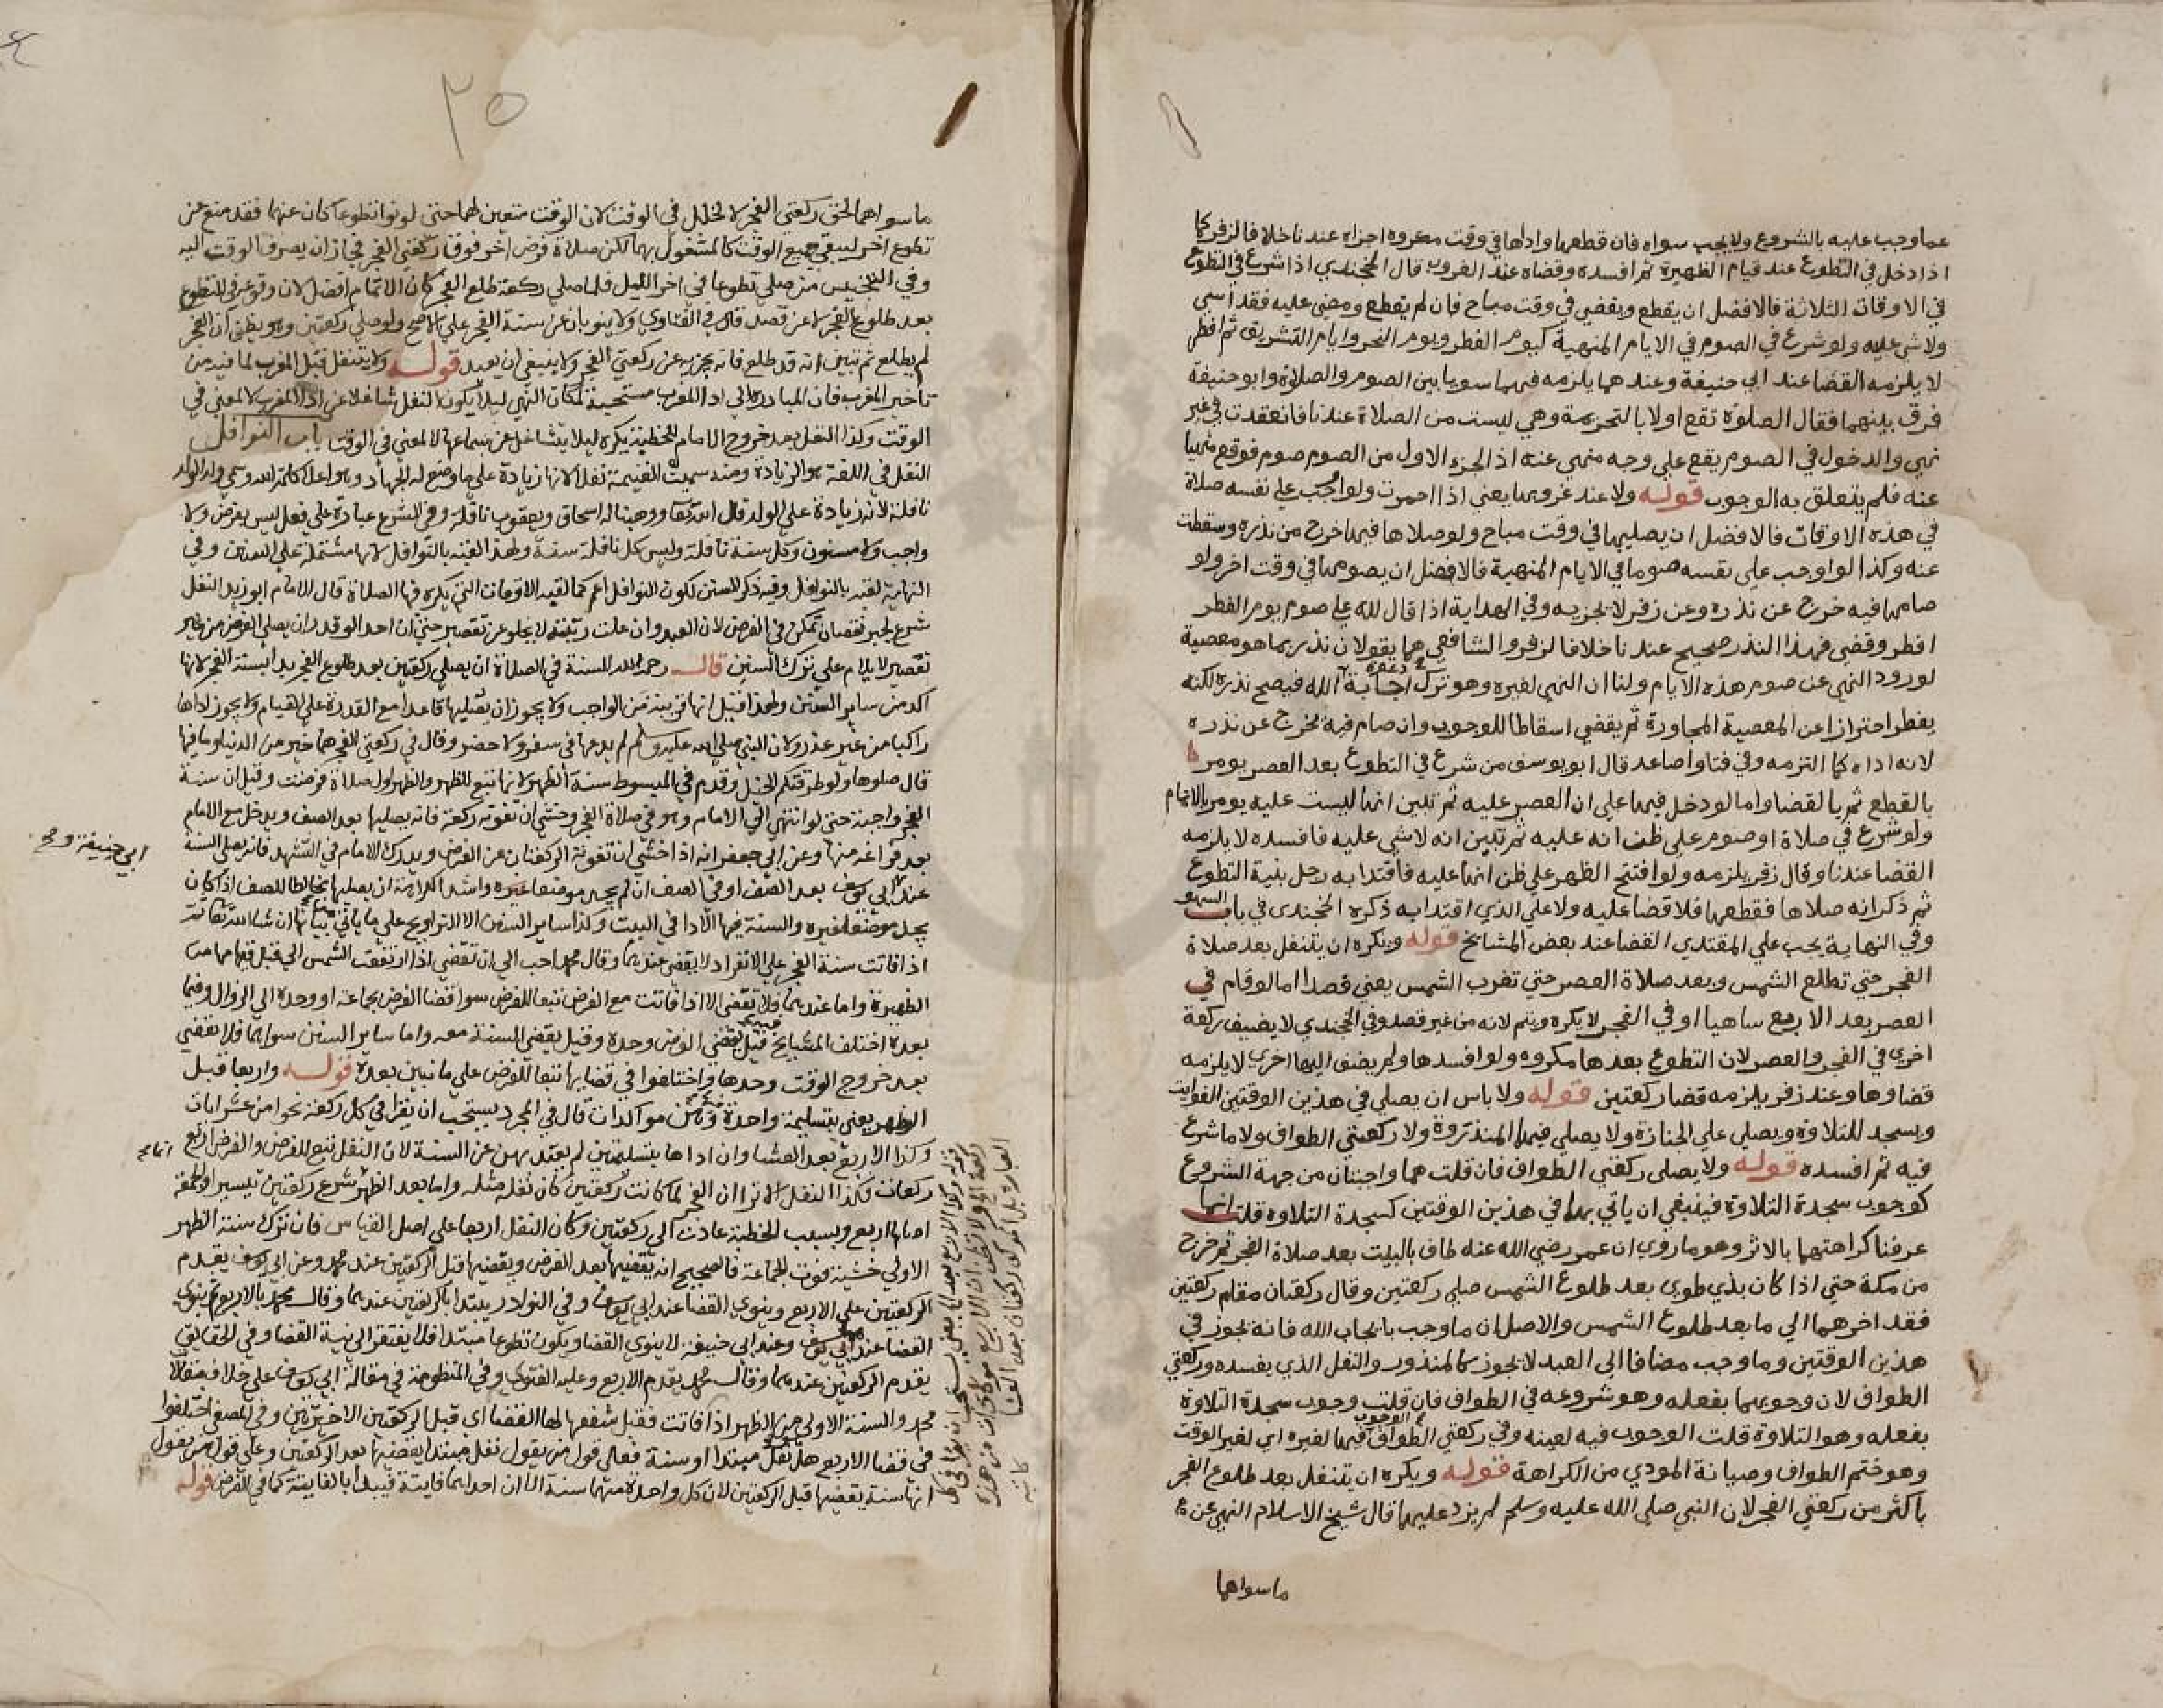 عما وجب عليه بالشروع ولا يجب سواه فان قطعها واداها في وقت مكروه اجزاه عندنا خلافا لزفر كما
اذا دخل في التطوع عند قيام الظهيرة ثم افسده وقضاه عند الغروب قال الخجندي اذا شرع في التطوع
في الاوقات الثلاثة فالافضل ان يقطع ويقضي في وقت مباح فان لم يقطع ومضى عليه فقد اسى
ولا شي عليه ولو شرع في الصوم في الايام المنهية كيوم الفطر ويوم النحر وايام التشريق ثم افطر
لا يلزمه القضا عند ابي حنيفة وعندهما يلزمه فهما سويا بين الصوم والصلاة وابو حنيفة
فرق بينهما فقال الصلوة تقع اولا بالتحريمة وهي ليست من الصلاة عندنا فانعقدت في غير
نهي والدخول في الصوم يقع علي وجه منهي عنه اذ الجزء الاول من الصوم صوم فوقع منهيا
عنه فلم يتعلق به الوجوب قوله ولا عند غروبها يعني اذا احمرت ولو اوجب علي نفسه صلاة
في هذه الاوقات فالافضل ان يصليها في وقت مباح ولو صلاها فيها خرج من نذره وسقطت
عنه وكذا لو اوجب علي نفسه صوما في الايام المنهية فالافضل ان يصومها في وقت اخر ولو
صامها فيه خرج عن نذره وعن زفر لا يجزيه وفي الهداية اذا قال لله علي صوم يوم الفطر
افطر وقضي فهذا النذر صحيح عندنا خلافا لزفر والشافعي هما يقولان نذر بما هو معصية
لورود النهي عن صوم هذه الايام ولنا ان النهي لغيره وهو ترك اجابة دعوة الله فيصح نذره لكنه
يفطر احترازا عن المعصية المجاورة ثم يقضي اسقاطا للوجوب وان صام فيه يخرج عن نذره
لانه اداه كما التزمه وفي فتاوا صاعد قال ابو يوسف من شرع في التطوع بعد العصر يومر
بالقطع ثم بالقضا واما لو دخل فيها علي ان العصر عليه ثم تبين انها ليست عليه يومر بالاتمام
ولو شرع في صلاة او صوم علي ظن انه عليه ثم تبين انه لا شي عليه فافسده لا يلزمه
القضا عندنا وقال زفر يلزمه ولو افتتح الظهر علي ظن انها عليه فاقتدا به رجل بنية التطوع
ثم ذكر انه صلاها فقطعها فلا قضا عليه ولا علي الذي اقتدا به ذكره الخجندي في باب السهو
وفي النهاية يجب علي المقتدي القضا عند بعض المشايخ قوله ويكره ان يتنفل بعد صلاة
الفجر حتي تطلع الشمس وبعد صلاة العصر حتي تغرب الشمس يعني قصدا اما لو قام في
العصر بعد الاربع ساهيا او في الفجر لا يكره ويتم لانه من غير قصد وفي الخجندي لا يضيف ركعة
اخري في الفجر والعصر لان التطوع بعدها مكروه ولو افسدها ولم يضف اليها اخري لا يلزمه
قضاوها وعند زفر يلزمه قضا ركعتين قوله ولا باس ان يصلي في هذين الوقتين الفوايت
ويسجد للتلاوة ويصلي علي الجنازة ولا يصلي فيها المنذورة ولا ركعتي الطواف ولا ما شرع
فيه ثم افسده قوله ولا يصلى ركعتي الطواف فان قلت هما واجبتان من جهة الشروع
كوجوب سجدة التلاوة فينبغي ان ياتي بها في هذين الوقتين كسجدة التلاوة قلت انها
عرفنا كراهتهما بالاثر وهو ما روي ان عمر رضي الله عنه طاف بالبيت بعد صلاة الفجر ثم خرج
من مكة حتي اذا كان بذي طوى بعد طلوع الشمس صلي ركعتين وقال ركعتان مقام ركعتين
فقد اخرهما الي ما بعد طلوع الشمس والاصل ان ما وجب بايجاب الله فانه يجوز في
هذين الوقتين وما وجب مضافا الى العبد لا يجوز كالمنذور والنفل الذي يفسده وركعتي
الطواف لان وجوبهما بفعله وهو شروعه في الطواف فان قلت وجوب سجدة التلاوة
بفعله وهو التلاوة قلت الوجوب فيه لعينه وفي ركعتي الطواف الوجوب فيها لغيره اي لغير الوقت
وهو ختم الطواف وصيانة المودي من الكراهة قوله ويكره ان يتنفل بعد طلوع الفجر
باكثر من ركعتي الفجر لان النبي صلي الله عليه وسلم لم يزد عليهما قال شيخ الاسلام النهي عن
ماسواها
٣٥
ما سواهما لحق ركعتي الفجر لا لخلل في الوقت لان الوقت متعين لهما حتى لو نوا تطوعا كان عنهما فقد منع عن
تطوع اخر ليبقي جميع الوقت كالمشغول بهما لكن صلاة فرض اخر فوق ركعتي الفجر فجاز ان يصرف الوقت اليه
وفي التجنيس من صلي تطوعا في اخر الليل فلما صلي ركعة طلع الفجر كان الاتمام افضل لان وقوعه في التطوع
بعد طلوع الفجر لا عن قصد قال في الفتاوي ولا ينوبان عن سنة الفجر علي الاصح ولو صلي ركعتين وهو يظن ان الفجر
لم يطلع ثم تبين انه قد طلع فانه يجزيه عن ركعتي الفجر ولا ينبغي ان يعيد قوله ولا يتنفل قبل المغرب لما فيه من
تاخير المغرب فان المبادرة الي ادا المغرب مستحبة لمكان النهي ليلا يكون النفل شاغلا عن ادا المغرب لا لمعنى في
الوقت وكذا النفل بعد خروج الامام للخطبة يكره ليلا يتشاغل عن سماعها لا لمعني في الوقت باب النوافل
النفل في اللغة هو الزيادة ومنه سميت الغنيمة نفلا لانها زيادة علي ما وضع له الجهاد وهو اعلا كلمة الله وسمي ولد الولد
نافلة لانه زيادة علي الولد قال الله تعا ووهبنا له اسحاق ويعقوب نافلة وفي الشرع عبارة علي فعل ليس بفرض ولا
واجب ولا مسنون وكل سنة نافلة وليس كل نافلة سنة ولهذا لقبه بالنوافل لانها مشتملة علي السنن وفي
النهاية لقبه بالنوافل وفيه ذكر السنن لكون النوافل اعم كما لقبه الاوقات التي يكره فيها الصلاة قال الامام ابو زيد النفل
شرع لجبر نقصان تمكن في الفرض لان العبد وان علت رتبته لا يخلو عن تقصير حتى ان احدا لو قدر ان يصلي الفرض من غير
تقصير لا يلام علي ترك السنن قال رحمه الله السنة في الصلاة ان يصلي ركعتين بعد طلوع الفجر بدا بسنة الفجر لانها
اكد من ساير السنن ولهذا قيل انها قريبة من الواجب ولا يجوز ان يصليها قاعدا مع القدرة علي القيام ولا يجوز اداها
راكبا من غير عذر ولان النبي صلي الله عليه وسلم لم يدعها في سفر ولا حضر وقال في ركعتي الفجر هما خير من الدنيا وما فيها
قال صلوها ولو طردتكم الخيل وقدم في المبسوط سنة الظهر لانها تبع للظهر والظهر اول صلاة فرضت وقيل ان سنة
الفجر واجبة حتى لو انتهي الي الامام وهو في صلاة الفجر وخشي ان تفوته ركعة فانه يصليها بعد الصف ويدخل مع الامام
بعد فراغه منها وعن ابي جعفر انه اذا خشي ان تفوته الركعتان من الفرض ويدرك الامام في التشهد فانه يصلي السنة
عند ابي يوسف بعد الصف او في الصف ان لم يجد موضعا غيره واشد الكراهة ان يصليها مخالطا للصف اذا كان
يجد موضعا غيره والسنة فيها الادا في البيت وكذا ساير السنن الا التراويح علي ما ياتي بيانها ان شا الله تعا
اذا فاتت سنة الفجر علي الانفراد لا يقضي عندهما وقال محمد احب الي ان تقضي اذا ارتفعت الشمس الي قبل قيامها من
الظهيرة واما عندهما فلا تقضى الا اذا فاتت مع الفرض تبعا للفرض سوا قضا الفرض بجماعة او وحده الي الزوال وفيما
بعده اختلف المشايخ قيل يقضي الفرض وحده وقيل يقضي السنة معه واما ساير السنن سواهما فلا يقضي
بعد خروج الوقت وحدها واختلفوا في قضايها تبعا للفرض علي ما نبين بعده قوله واربعا قبل
الظهر يعني بتسليمة واحدة وهن موكدات قال في المجرد يستحب ان يقرا في كل ركعة نحوا من عشر ايات
وكذا الاربع بعد العشا وان اداها بتسليمتين لم يعتد بهن عن السنة لان النفل تبع للفرض والفرض اربع
ركعات فكذا النفل الا ترا ان الفجر لما كانت ركعتين كان نفله مثله واما بعد الظهر شرع ركعتين تيسيرا والجمعة
اصلها اربع وبسبب الخطبة عادت الي ركعتين وكان النفل اربعا علي اصل القياس فان ترك سنة الظهر
الاولي خشية فوت الجماعة فالصحيح انه يقضيها بعد الفرض ويقضيها قبل الركعتين عند محمد وعن ابي يوسف يقدم
الركعتين علي الاربع وينوي القضا عند ابي يوسف وفي النوادر يبتدا بالركعتين عندهما وقال محمد بالاربع ثم ينوي
القضا عند ابي يوسف وعند ابي حنيفة لا ينوي القضا ويكون تطوعا مبتدا فلا يفتقر الي نية القضا وفي الحقايق
يقدم الركعتين عندهما وقال محمد يقدم الاربع وعليه الفتوي وفي المنظومة في مقالة ابي يوسف علي خلاف مقالة
محمد والسنة الاولي من الظهر اذا فاتت فقبل شفعها لها القضا اي قبل الركعتين الاخيرتين وفي المصفي اختلفوا
في قضا الاربع هل نفل مبتدا او سنة فعلي قول من يقول نفل مبتدا يقضيها بعد الركعتين وعلي قول من يقول
انها سنة يقضيها قبل الركعتين لان كل واحدة منهما سنة الا ان احداهما فايتة فيبدا بالفايتة كما في الفرض قوله
ابي حنيفة ومحمد